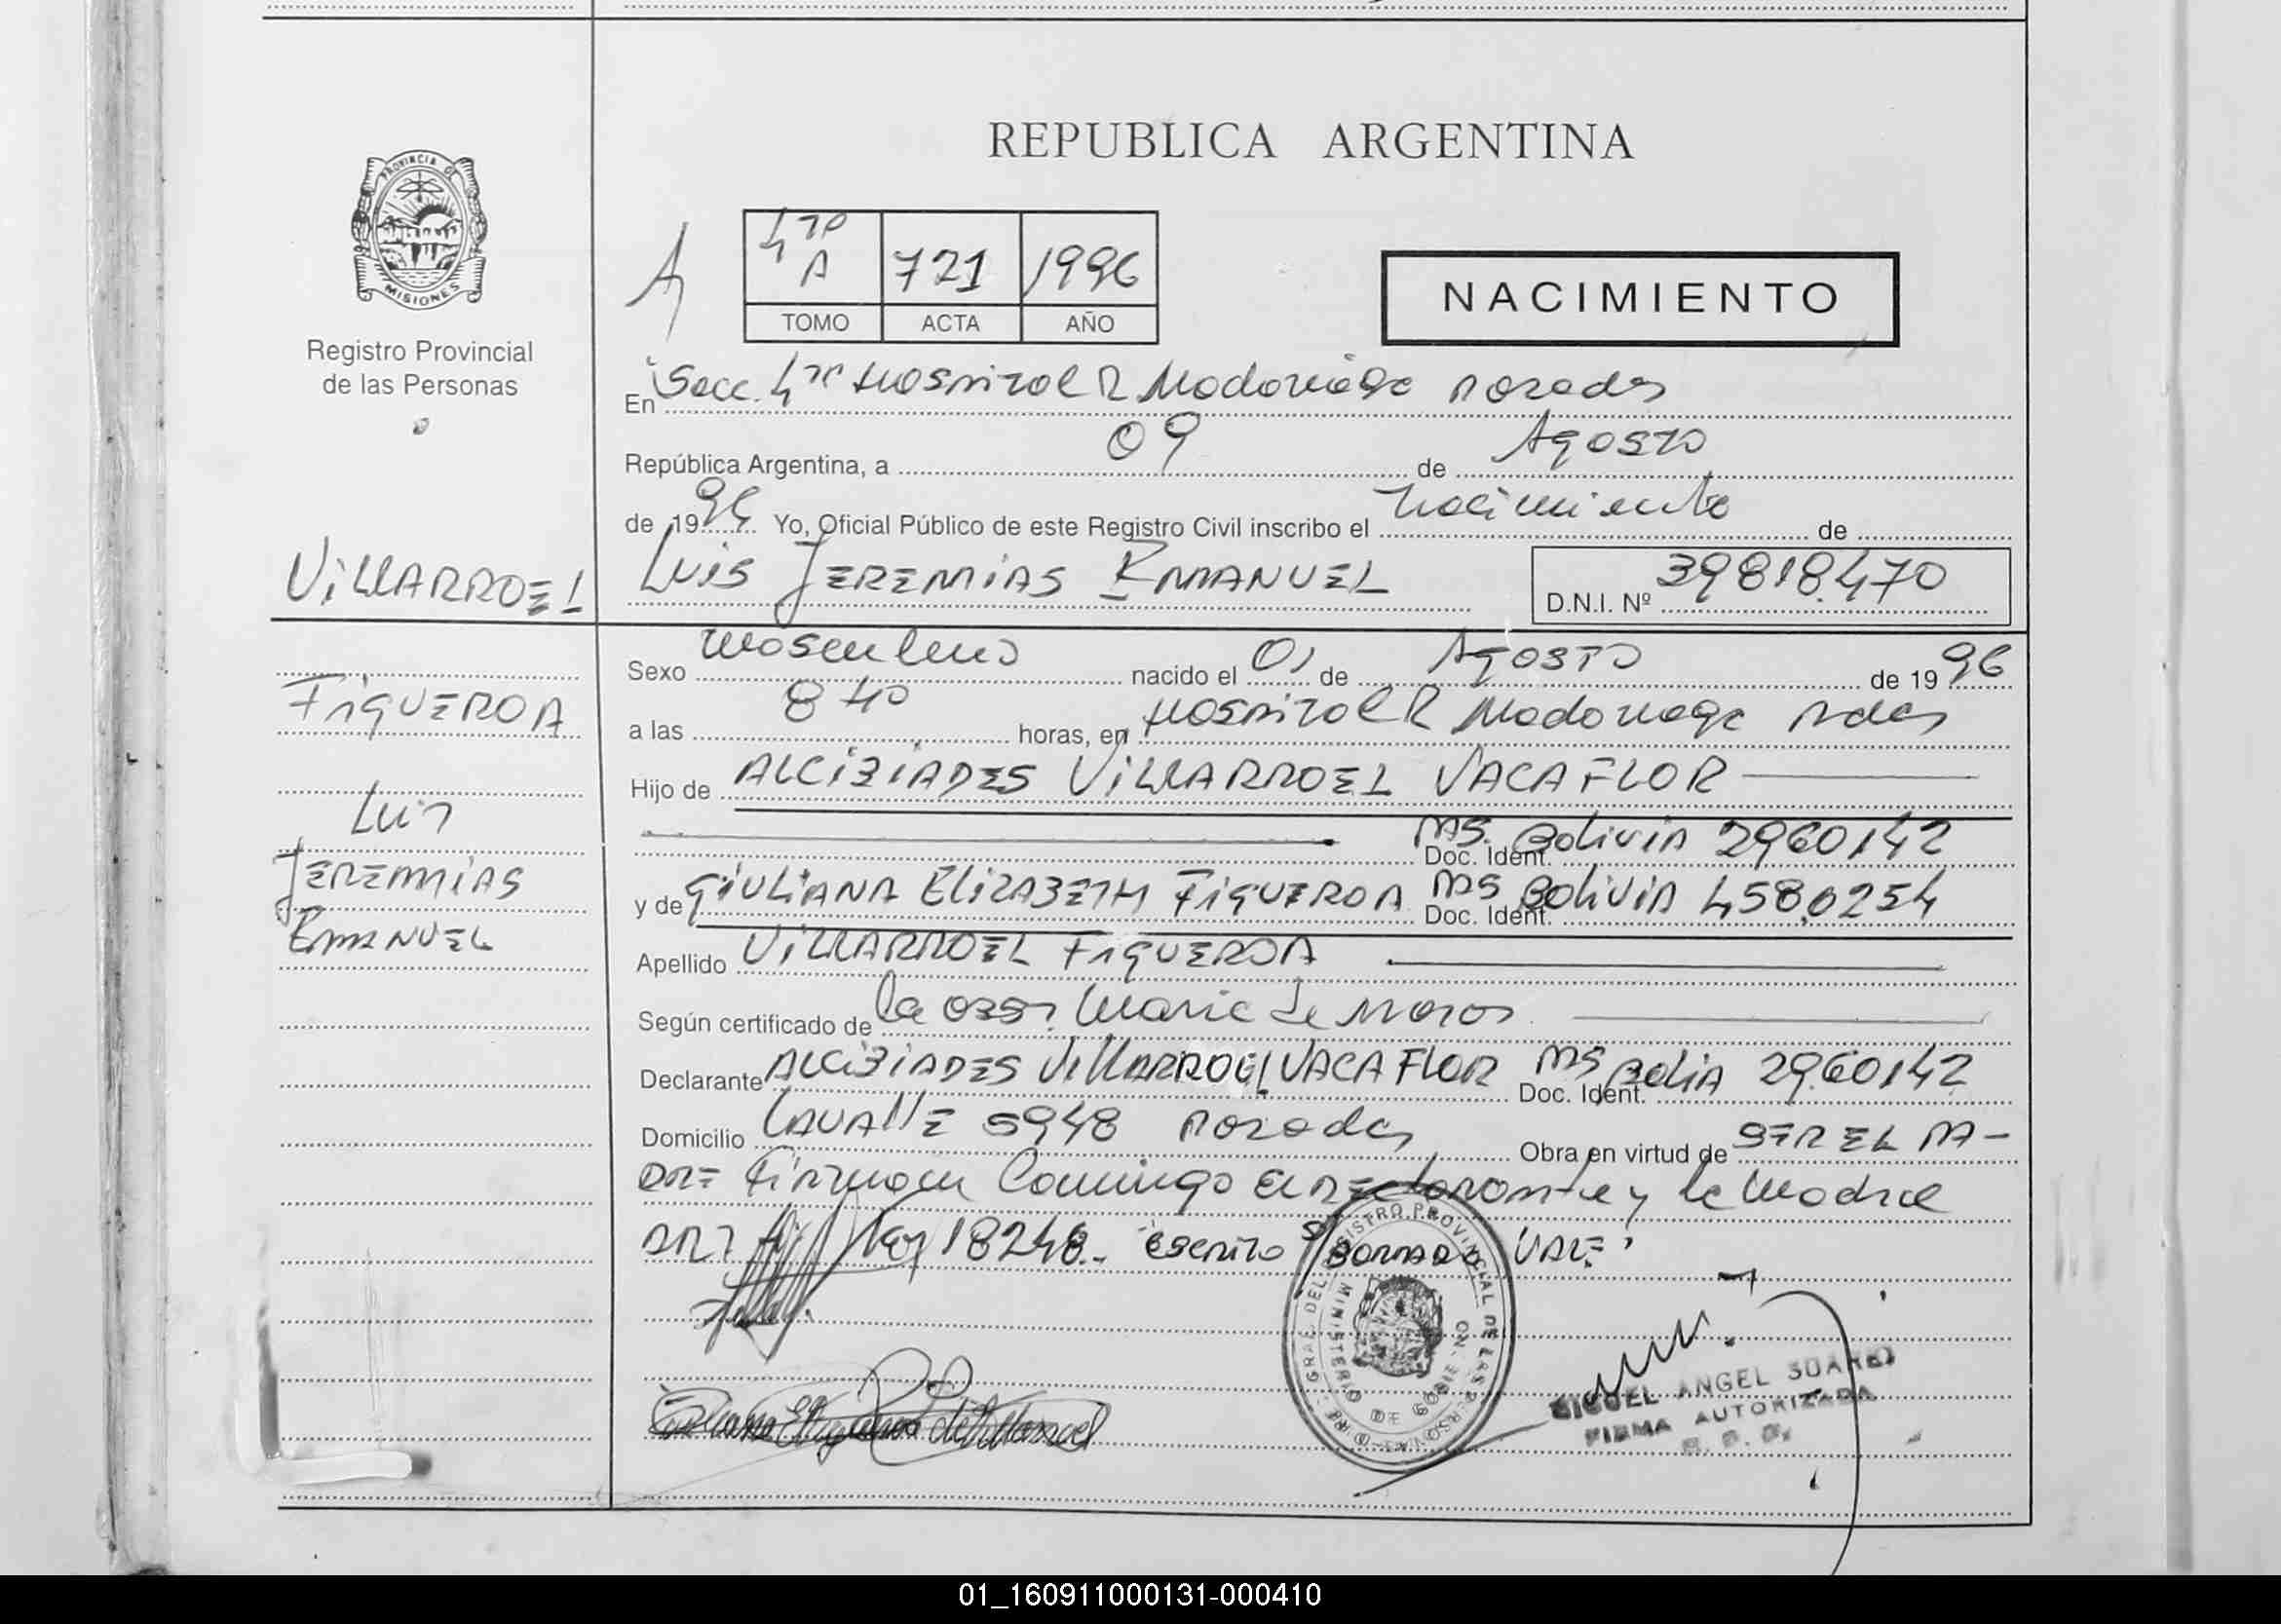 REPUBLICA ARGENTINA
PROVINCIA DE
MISIONES
Registro Provincial
de las Personas
A
4ta A 721 1996
TOMO ACTA AÑO
NACIMIENTO
En Secc. 4ta Hospital R Madariaga Posadas
República Argentina, a 09 de Agosto
de 1996 Yo, Oficial Público de este Registro Civil inscribo el Nacimiento de
VILLARROEL LUIS JEREMIAS EMANUEL
D.N.I. Nº 39818.470
Sexo Masculino nacido el 01 de Agosto de 1996
FIGUEROA
a las 8 40 horas, en Hospital R Madariaga Pdas
Hijo de ALCIBIADES VILLARROEL VACA FLOR
Luis
Doc. Ident. MS. Bolivia 2960142
JEREMIAS
y de GIULIANA ELIZABETH FIGUEROA Doc. Ident. MS Bolivia 4580254
EMANUEL
Apellido VILLARROEL FIGUEROA
Según certificado de la Obst. Maria de
Declarante ALCIBIADES VILLARROEL VACA FLOR Doc. Ident. MS Bolia 2960142
Domicilio LAVALLE 5948 Posadas Obra en virtud de SER EL PA-
DRE Firman Conmigo El Declarante y la Madre
ART Ley 18248.- Escrito S/BORRADO VALE
DEL REGISTRO PROVINCIAL DE LAS PERSONAS
MINISTERIO DE GOBIERNO
MIGUEL ANGEL SUAREZ
FIRMA AUTORIZADA
01_160911000131-000410